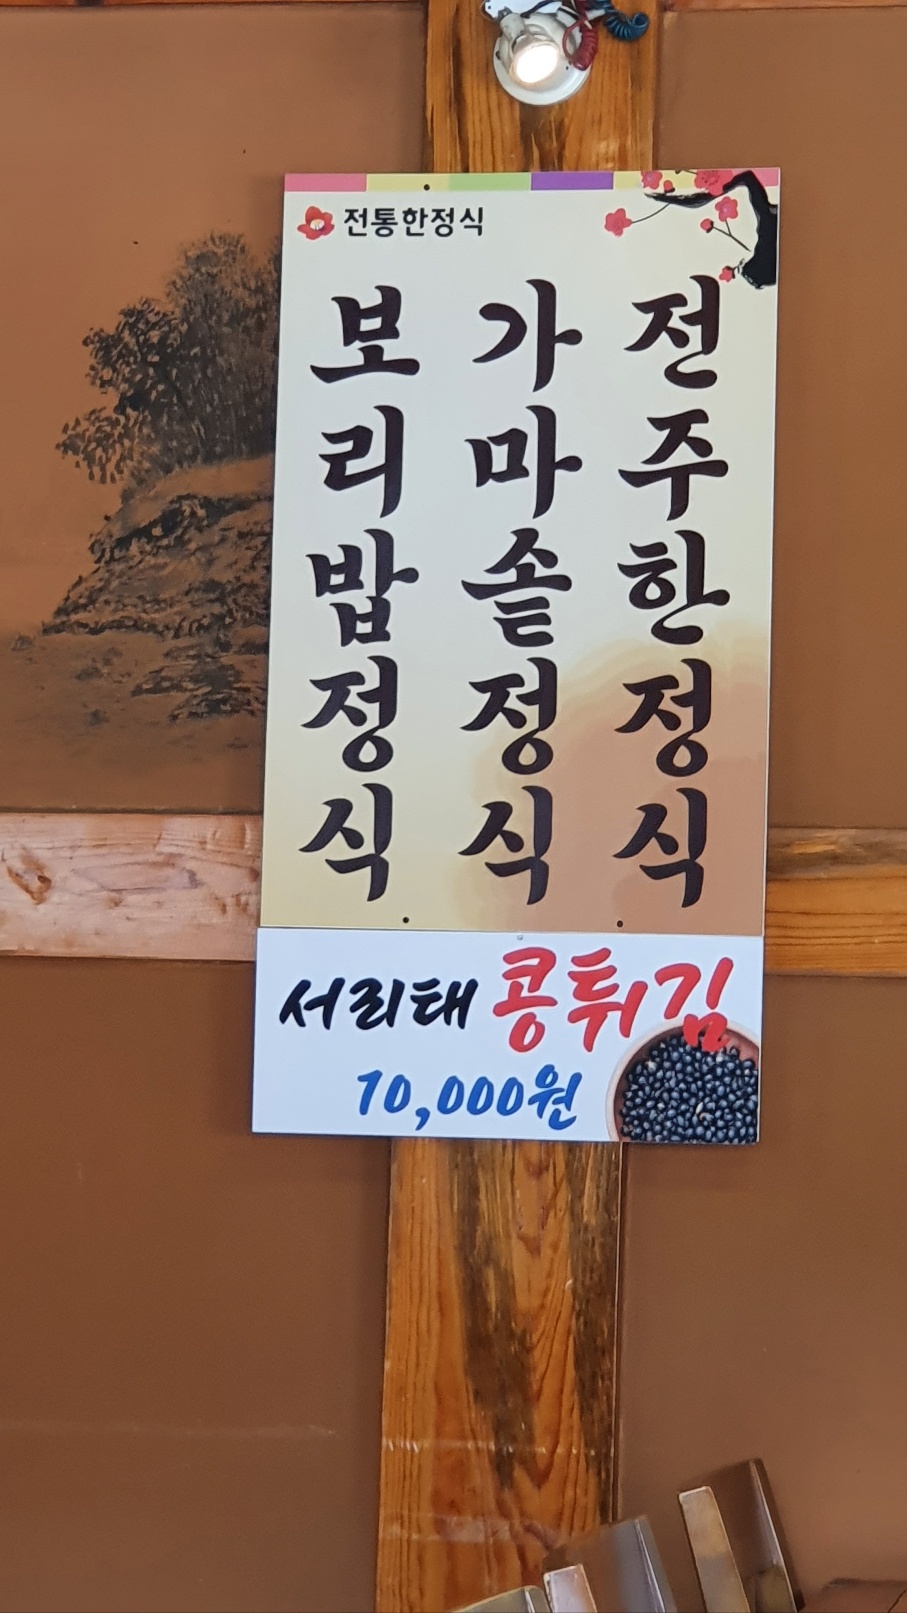 전통한정식
전주한정식
가마솥정식
보리밥정식
서리태 콩튀김
10,000원